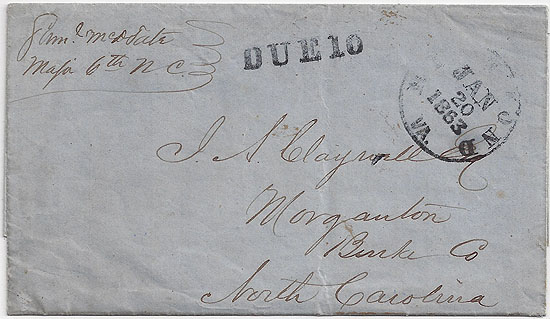 Saml McDTate
Major 6th N.C.
DUE 10
OND
JAN
20
1863
VA.
J. A. Claywell
Morganton
Burke Co
North Carolina